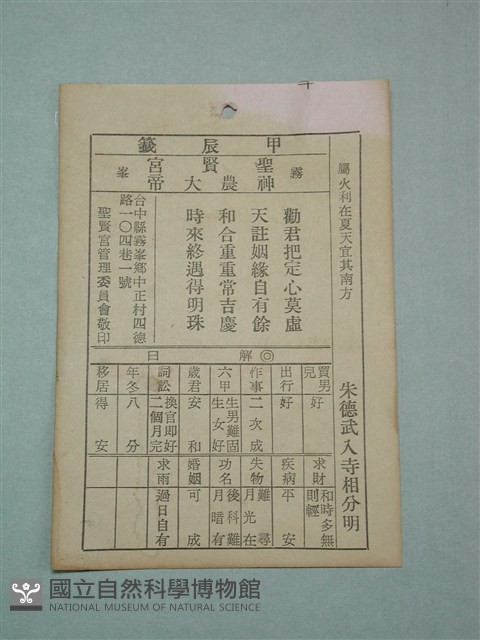 屬火利在夏天宜其南方
朱德武入寺相分明
甲辰籤
霧峯
聖賢宮
神農大帝
勸君把定心莫虛
天註姻緣自有餘
和合重重常吉慶
時來終遇得明珠
台中縣霧峯鄉中正村四德
路一〇四巷一號
聖賢宮管理委員會敬印
◎解曰
買男兒 好
求財 和時多無則輕
出行 好
疾病 平安
作事 二次成
失物 難尋月光在
六甲 生男難固生女好
功名 後科難月暗有
歲君 安和
婚姻 可成
詞訟 換官即好二個月完
求雨 過日自有
年冬 八分
移居 得安
國立自然科學博物館
NATIONAL MUSEUM OF NATURAL SCIENCE